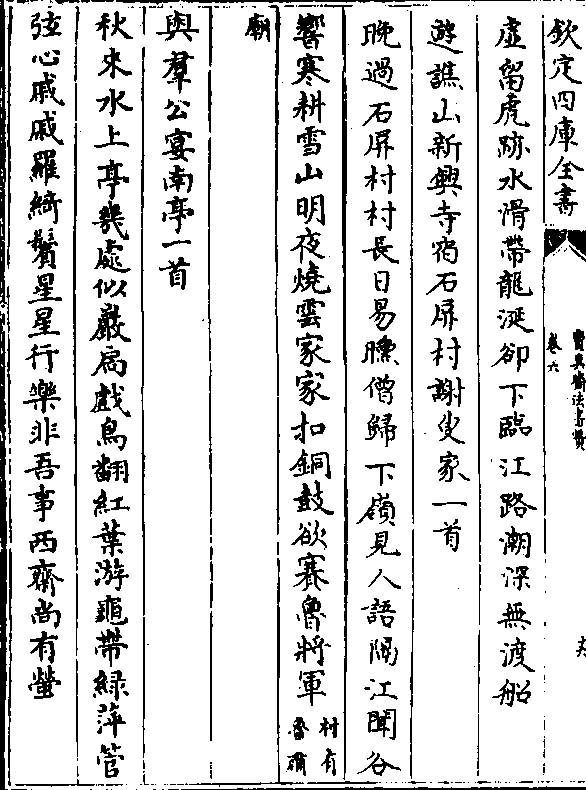 欽定四庫全書
寶真齋法書贊
卷六
虛留虎跡水滑帶龍涎卻下臨江路潮深無渡船
遊譙山新興寺宿石屏村謝叟家一首
晚過石屏村村長日易曛僧歸下嶺見人語隔江聞谷
響寒耕雪山明夜燒雲家家扣銅鼓欲賽魯將軍村有魯肅
廟
與羣公宴南亭一首
秋來水上亭幾處似巖扃戲鳥翻紅葉游龜帶緑萍管
弦心戚戚羅綺鬢星星行樂非吾事西齋尚有螢